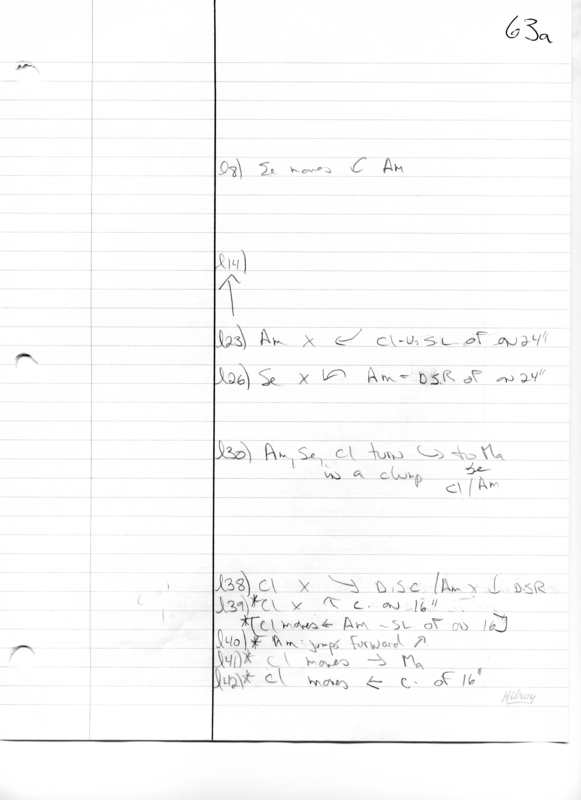 63a
l8) Se moves ↙ Am
l14)
l23) Am x ↙ Cl-U.SL of on 24"
l26) Se x ↖ Am - DSR of on 24"
l30) Am, Se, Cl turn ↪ to Ma
in a clump Se
Cl/Am
l38) Cl x ↘ D.S.C. / Am x ↓ DSR
l39)* Cl x ↖ C. on 16"
*[Cl moves ← Am - SL of on 16]
l40)* Am: jumps forward ↗
l41)* Cl moves → Ma
l42)* Cl moves ← C. of 16"
Hilroy